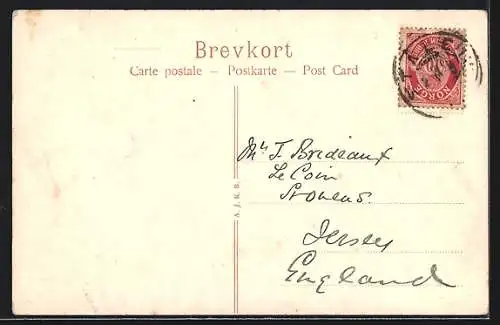 Brevkort
Carte postale – Postkarte – Post Card
NORGE
A. J. K. B.
Mrs F. Brideaux
Le Coin
St Owens.
Jersey
England